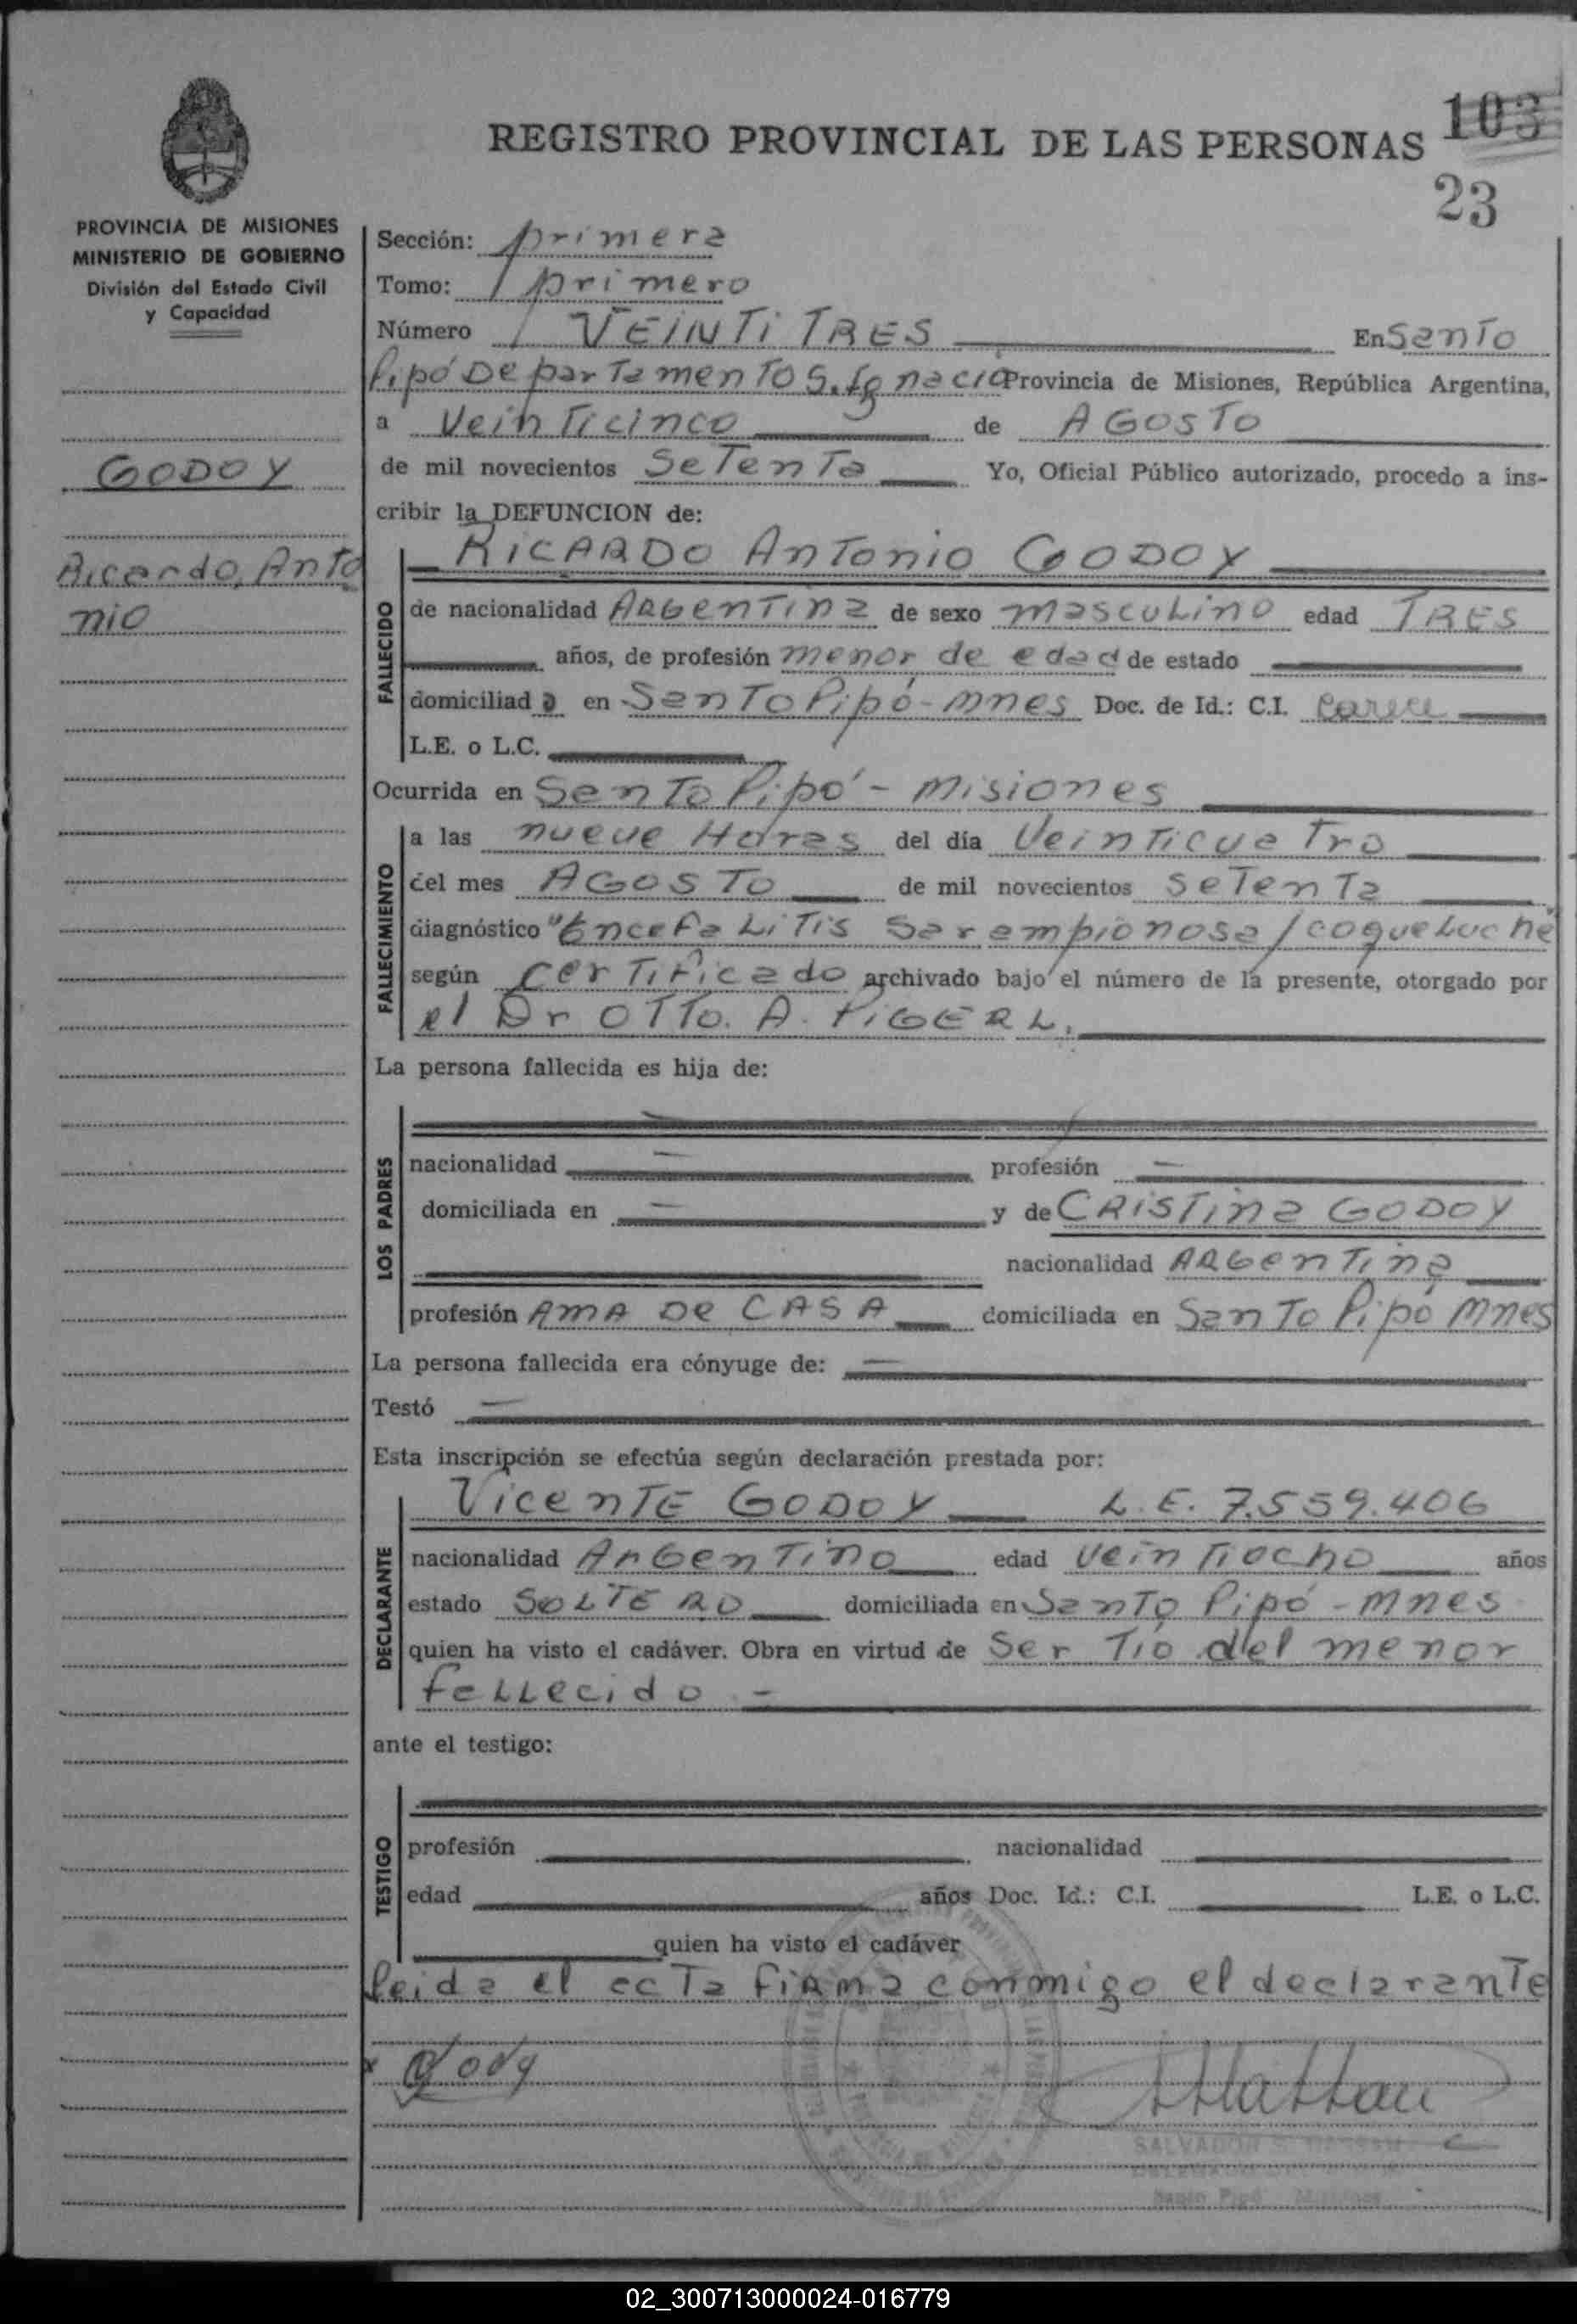 REGISTRO PROVINCIAL DE LAS PERSONAS
103
23
PROVINCIA DE MISIONES
MINISTERIO DE GOBIERNO
División del Estado Civil
y Capacidad
GODOY
Ricardo, Anto
nio
Sección: primera
Tomo: primero
Número VEINTITRES En Santo
Pipó Departamento S. Ignacio Provincia de Misiones, República Argentina,
a Veinticinco de AGOSTO
de mil novecientos SeTenTa Yo, Oficial Público autorizado, procedo a ins-
cribir la DEFUNCION de:
RICARDO AnTonio GODOY
FALLECIDO
de nacionalidad ARGenTina de sexo masculino edad TRES
años, de profesión menor de edad de estado
domiciliad o en SanTo Pipó-mnes Doc. de Id.: C.I. Carece
L.E. o L.C.
Ocurrida en SanTo Pipó - misiones
FALLECIMIENTO
a las nueve Horas del día VeinTicuaTro
del mes AGOSTO de mil novecientos SeTenTa
diagnóstico "EncefaLiTis Sarampionosa/coqueLuche
según CerTificado archivado bajo el número de la presente, otorgado por
el Dr OTTo. A. PiGERL.
La persona fallecida es hija de:
LOS PADRES
nacionalidad profesión
domiciliada en y de CRISTina GODOY
nacionalidad ARGenTina
profesión AMA De CASA domiciliada en SanTo Pipó Mnes
La persona fallecida era cónyuge de:
Testó
Esta inscripción se efectúa según declaración prestada por:
VicenTE GODOY L.E. 7.559.406
DECLARANTE
nacionalidad ArGenTino edad VeinTiocho años
estado SOLTERO domiciliada en SanTo Pipó - mnes
quien ha visto el cadáver. Obra en virtud de Ser Tio del menor
faLLecido -
ante el testigo:
TESTIGO
profesión nacionalidad
edad años Doc. Id.: C.I. L.E. o L.C.
quien ha visto el cadáver
leida el acTa fiRma conmigo el declaranTe
x Gody
SALVADOR S.
Santo Pipó Misiones
02_300713000024-016779